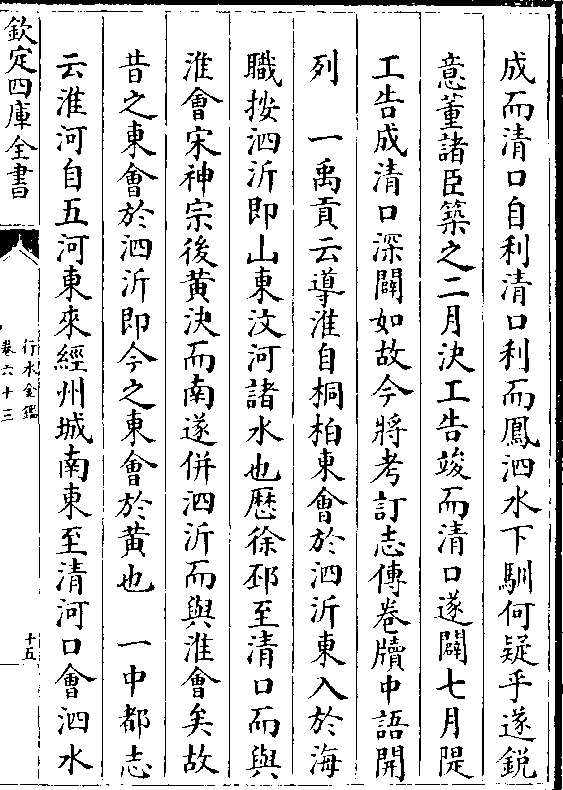 成而清口自利清口利而鳳泗水下馴何疑乎遂銳
意董諸臣築之二月決工告竣而清口遂闢七月隄
工告成清口深闢如故今將考訂志傳卷牘中語開
列　一禹貢云導淮自桐柏東會於泗沂東入於海
職按泗沂即山東汶河諸水也歴徐邳至清口而與
淮會宋神宗後黄決而南遂併泗沂而與淮會矣故
昔之東會於泗沂即今之東會於黄也　一中都志
云淮河自五河東來經州城南東至清河口會泗水
欽定四庫全書
行水金鑑
卷六十三
十五